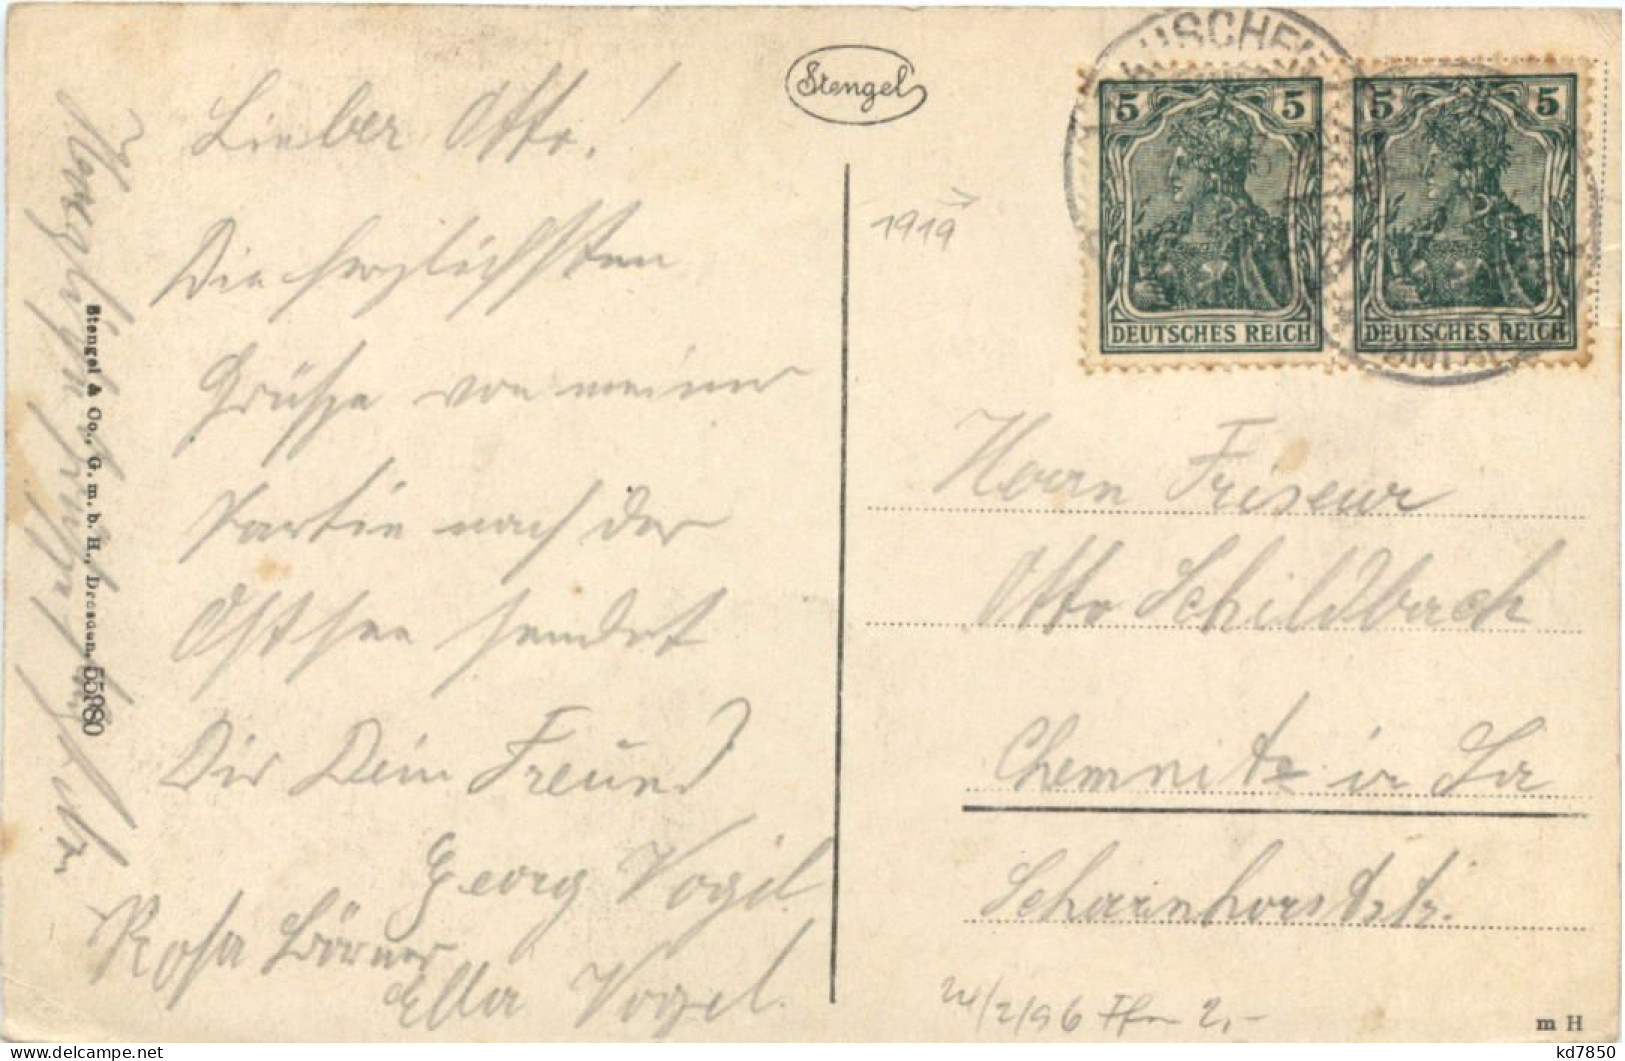 Stengel
Lieber Otto!
Die herzlichsten
Grüße von meiner
Partie nach der
Ostsee sendet
Dir Dein Freund
Georg Vogel.
Rosa Börner
Ella Vogel.
Stengel & Co., G. m. b. H., Dresden. 55980
1919
5 5
DEUTSCHES REICH
5 5
DEUTSCHES REICH
Herrn Friseur
Otto Schildbach
Chemnitz in Sa
Scharnhorststr.
24/2/96 Ffm 2,-
m H
kd7850